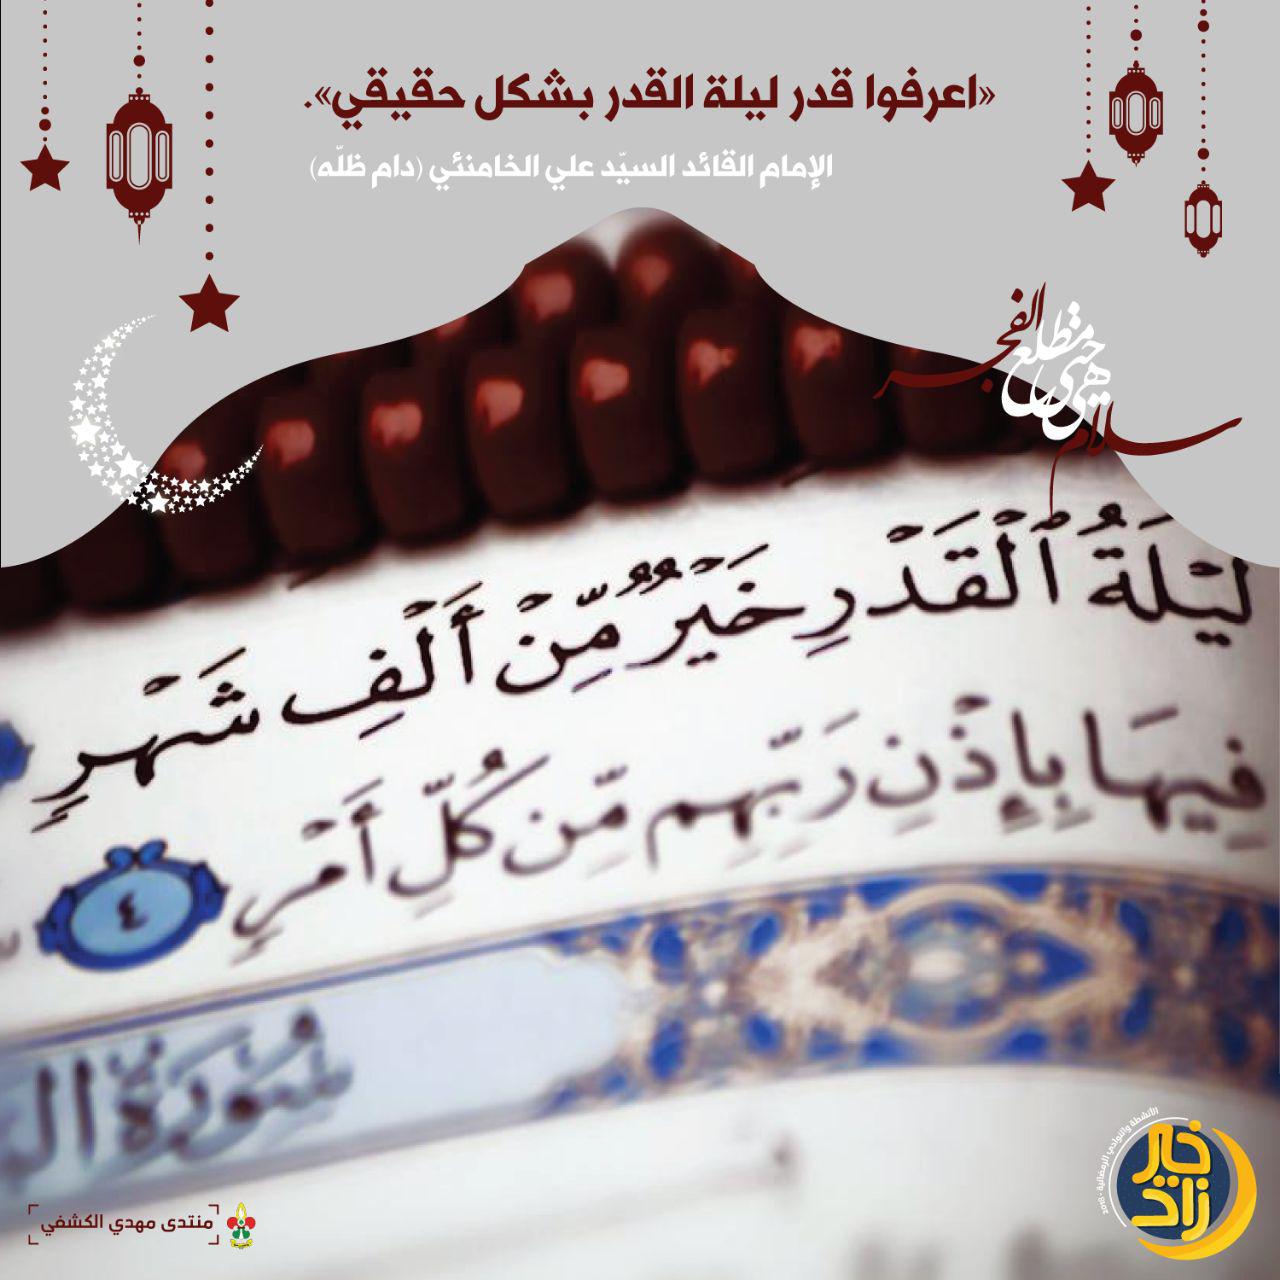 «اعرفوا قدر ليلة القدر بشكل حقيقي».
الإمام القائد السيّد علي الخامنئي (دام ظلّه)
سلام هي حتى مطلع الفجر
لَيْلَةُ ٱلْقَدْرِ خَيْرٌ مِّنْ أَلْفِ شَهْرٍ
فِيهَا بِإِذْنِ رَبِّهِم مِّن كُلِّ أَمْرٍ ٤
سُورَةُ
الأنشطة والنوادي الرمضانية - 2018
خير زاد
منتدى مهدي الكشفي